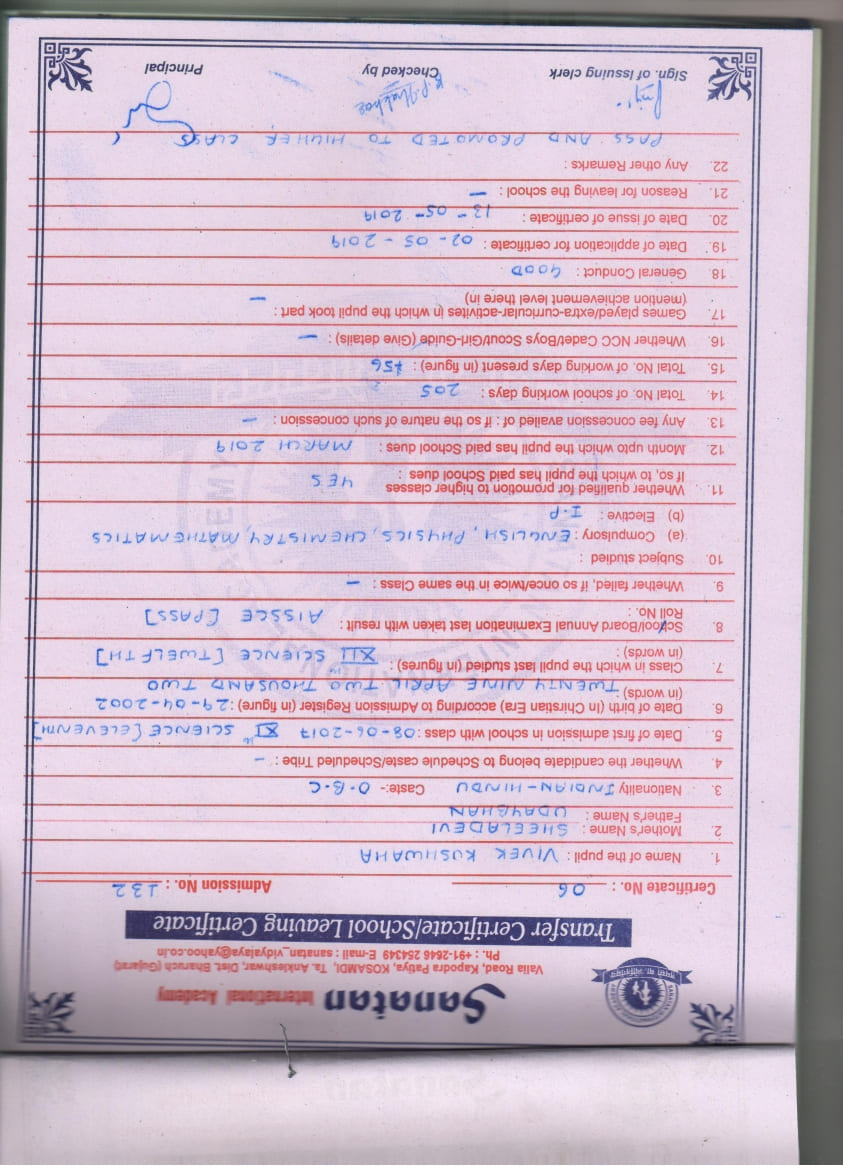 Sanatan International Academy
Valia Road, Kapodra Patiya, KOSAMDI, Ta. Ankleshwar, Dist. Bharuch (Gujarat)
Ph. : +91-2646 254349 E-mail : sanatan_vidyalaya@yahoo.co.in
Transfer Certificate/School Leaving Certificate
Certificate No. : 06 Admission No. : 132
1. Name of the pupil : VIVEK KUSHWAHA
2. Mother's Name : SHEELADEVI
Father's Name : UDAYBHAN
3. Nationality INDIAN-HINDU Caste:- O.B.C
4. Whether the candidate belong to Schedule caste/Scheduled Tribe : -
5. Date of first admission in school with class : 08-06-2017 XI SCIENCE [ELEVENTH]
6. Date of birth (In Chirstian Era) according to Admission Register (in figure) : 29-04-2002
(in words) : TWENTY NINE APRIL TWO THOUSAND TWO
7. Class in which the pupil last studied (in figures) : XII SCIENCE [TWELFTH]
(in words) :
8. School/Board Annual Examination last taken with result : AISSCE [PASS]
Roll No. :
9. Whether failed, if so once/twice in the same Class : -
10. Subject studied :
(a) Compulsory : ENGLISH, PHYSICS, CHEMISTRY, MATHEMATICS
(b) Elective : I.P
11. Whether qualified for promotion to higher classes
If so, to which the pupil has paid School dues : YES
12. Month upto which the pupil has paid School dues : MARCH 2019
13. Any fee concession availed of : if so the nature of such concession : -
14. Total No. of school working days : 205
15. Total No. of working days present (in figure) : 156
16. Whether NCC Cadet/Boys Scout/Girl-Guide (Give details) : -
17. Games played/extra-curricular-activites in which the pupil took part :
(mention achievement level there in) -
18. General Conduct : GOOD
19. Date of application for certificate : 02-05-2019
20. Date of issue of certificate : 13-05-2019
21. Reason for leaving the school : -
22. Any other Remarks :
PASS AND PROMOTED TO HIGHER CLASS
Sign. of Issuing clerk Checked by Principal